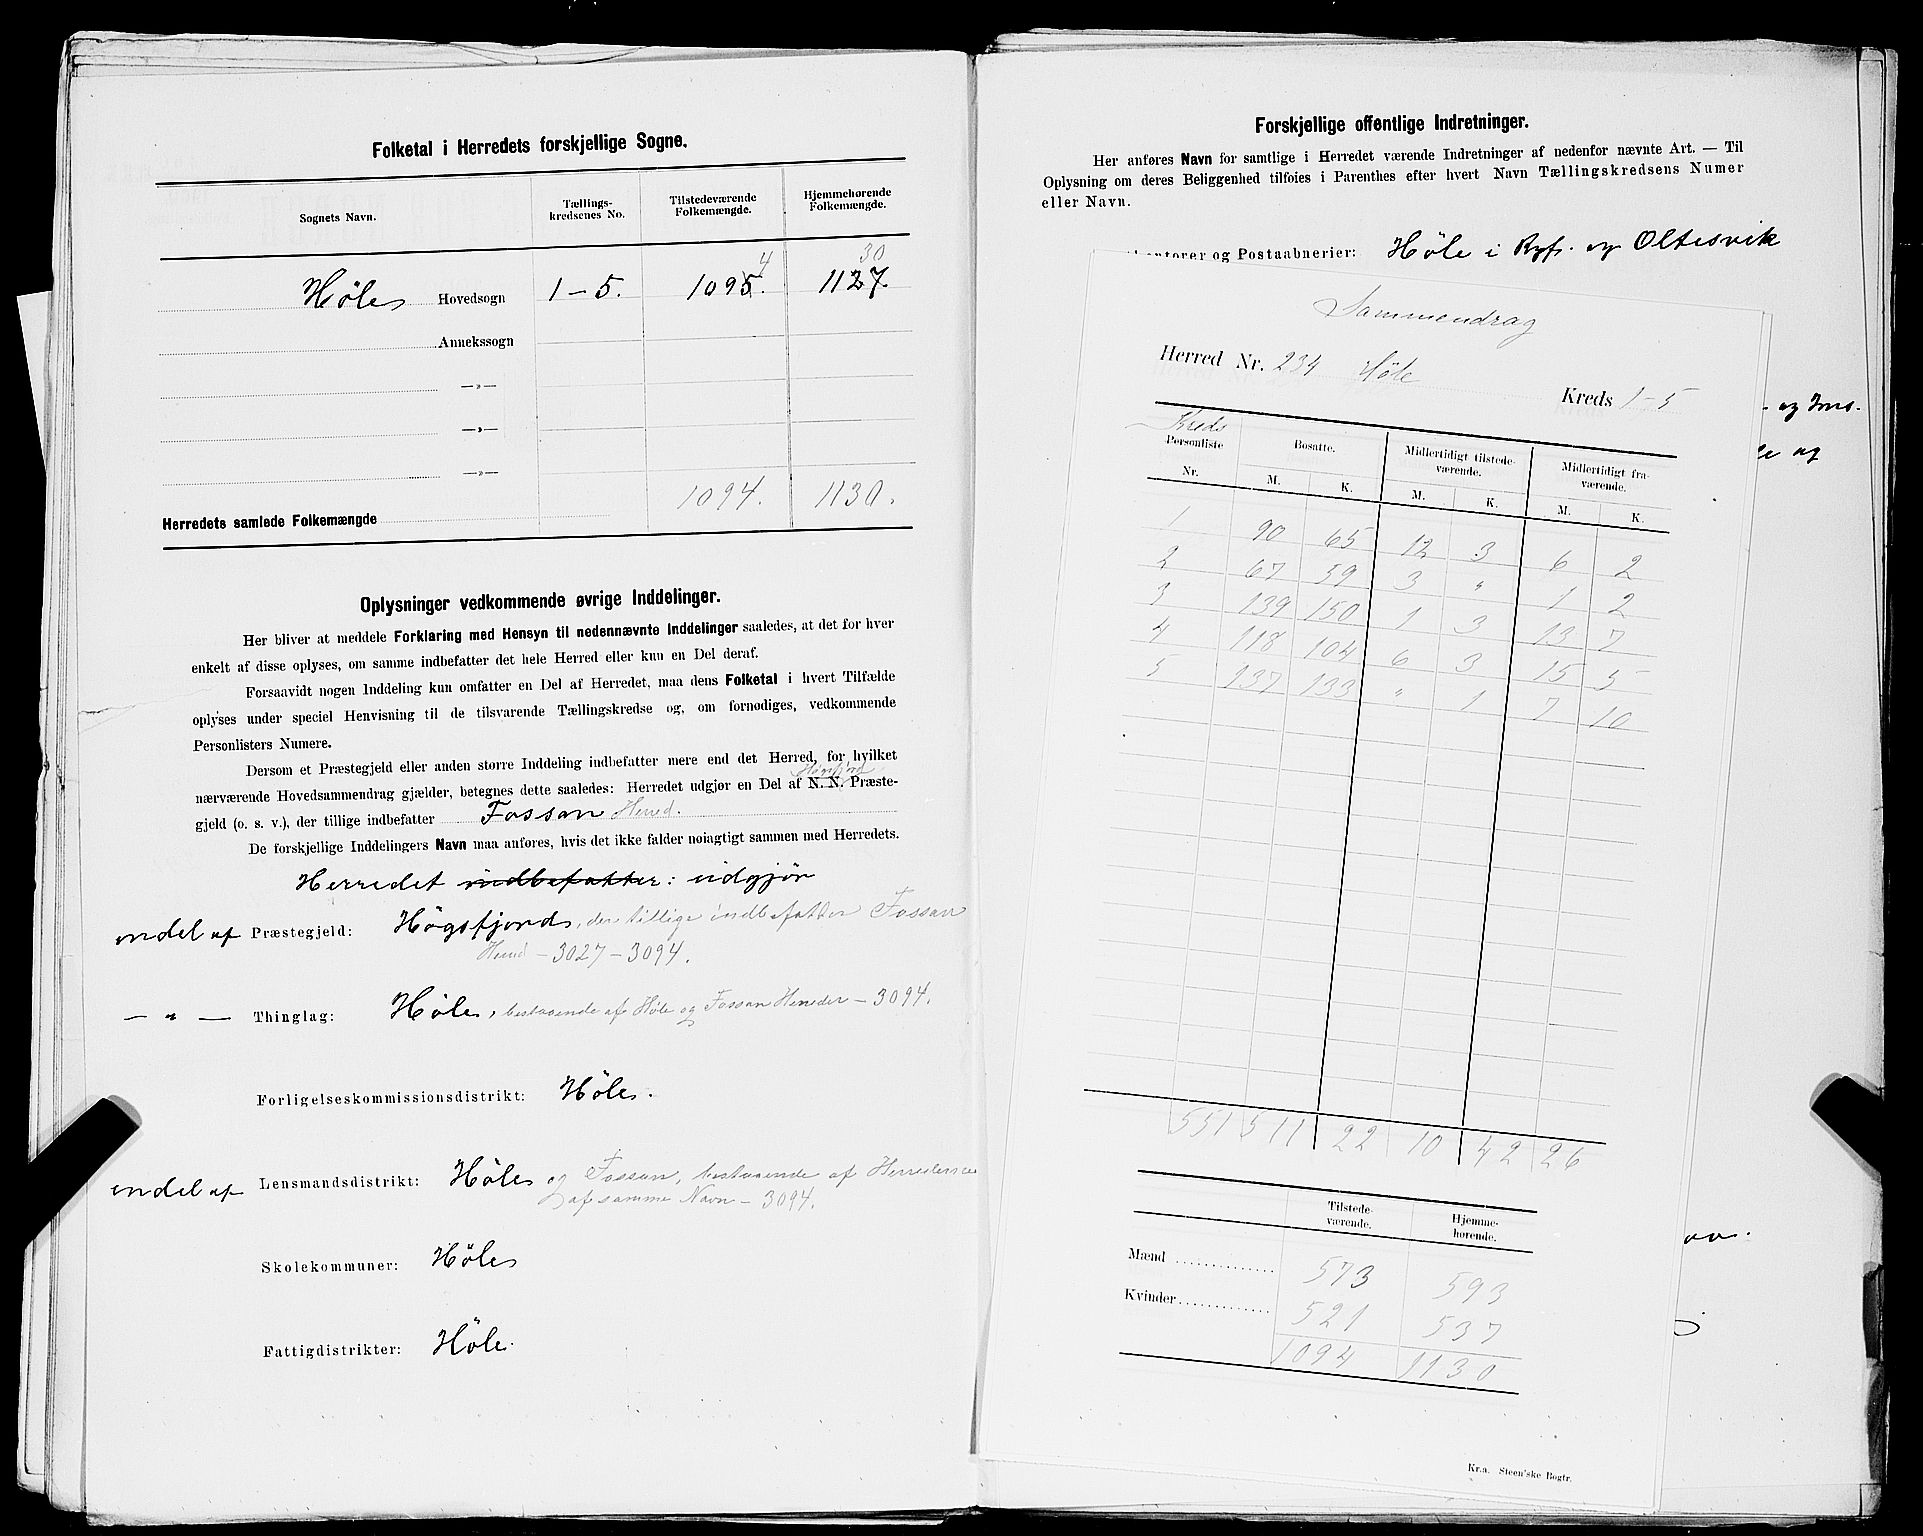 Folketal i Herredets forskjellige Sogne.
Sognets Navn.
Tællings-
kredsenes No.
Tilstedeværende
Folkemængde.
Hjemmehørende
Folkemængde.
4 30
Høle Hovedsogn 1-5. 1095. 1127.
Annekssogn
—»—
—»—
—»—
Herredets samlede Folkemængde 1094. 1130.
Oplysninger vedkommende øvrige Inddelinger.
Her bliver at meddele Forklaring med Hensyn til nedennævnte Inddelinger saaledes, at det for hver
enkelt af disse oplyses, om samme indbefatter det hele Herred eller kun en Del deraf.
Forsaavidt nogen Inddeling kun omfatter en Del af Herredet, maa dens Folketal i hvert Tilfælde
oplyses under speciel Henvisning til de tilsvarende Tællingskredse og, om fornødiges, vedkommende
Personlisters Numere.
Dersom et Præstegjeld eller anden større Inddeling indbefatter mere end det Herred, for hvilket
Høgsfjord
nærværende Hovedsammendrag gjælder, betegnes dette saaledes: Herredet udgjør en Del af N. N. Præste-
gjeld (o. s. v.), der tillige indbefatter Fossan Herred.
De forskjellige Inddelingers Navn maa anføres, hvis det ikke falder nøiagtigt sammen med Herredets.
Herredet indbefatter: udgjør
endel af Præstegjeld: Høgsfjord, der tillige indbefatter Fossan
Herred - 3027 - 3094.
— " — Thinglag: Høle, bestaaende af Høle og Fossan Herreder - 3094.
Forligelseskommissionsdistrikt: Høle.
endel af Lensmandsdistrikt: Høle og Fossan, bestaaende af Herrederne
af samme Navn - 3094.
Skolekommuner: Høle
Fattigdistrikter: Høle.
Forskjellige offentlige Indretninger.
Her anføres Navn for samtlige i Herredet værende Indretninger af nedenfor nævnte Art. — Til
Oplysning om deres Beliggenhed tilføies i Parenthes efter hvert Navn Tællingskredsens Numer
eller Navn.
og Postaabnerier: Høle i Ryf. og Oltesvik
Sammendrag
Herred Nr. 234 Høle
Kreds 1-5
Kreds
Personliste
Nr.
Bosatte.
M. K.
Midlertidigt tilstede-
værende.
M. K.
Midlertidigt fra-
værende.
M. K.
1 90 65 12 3 6 2
2 67 59 3 " 1 2
3 139 150 1 3 13 7
4 118 104 6 3 15 5
5 137 133 " 1 7 10
551 511 22 10 42 26
Tilstede-
værende.
Hjemme-
hørende.
Mænd 573 593
Kvinder 521 537
1094 1130
Kr.a. Steen'ske Bogtr.